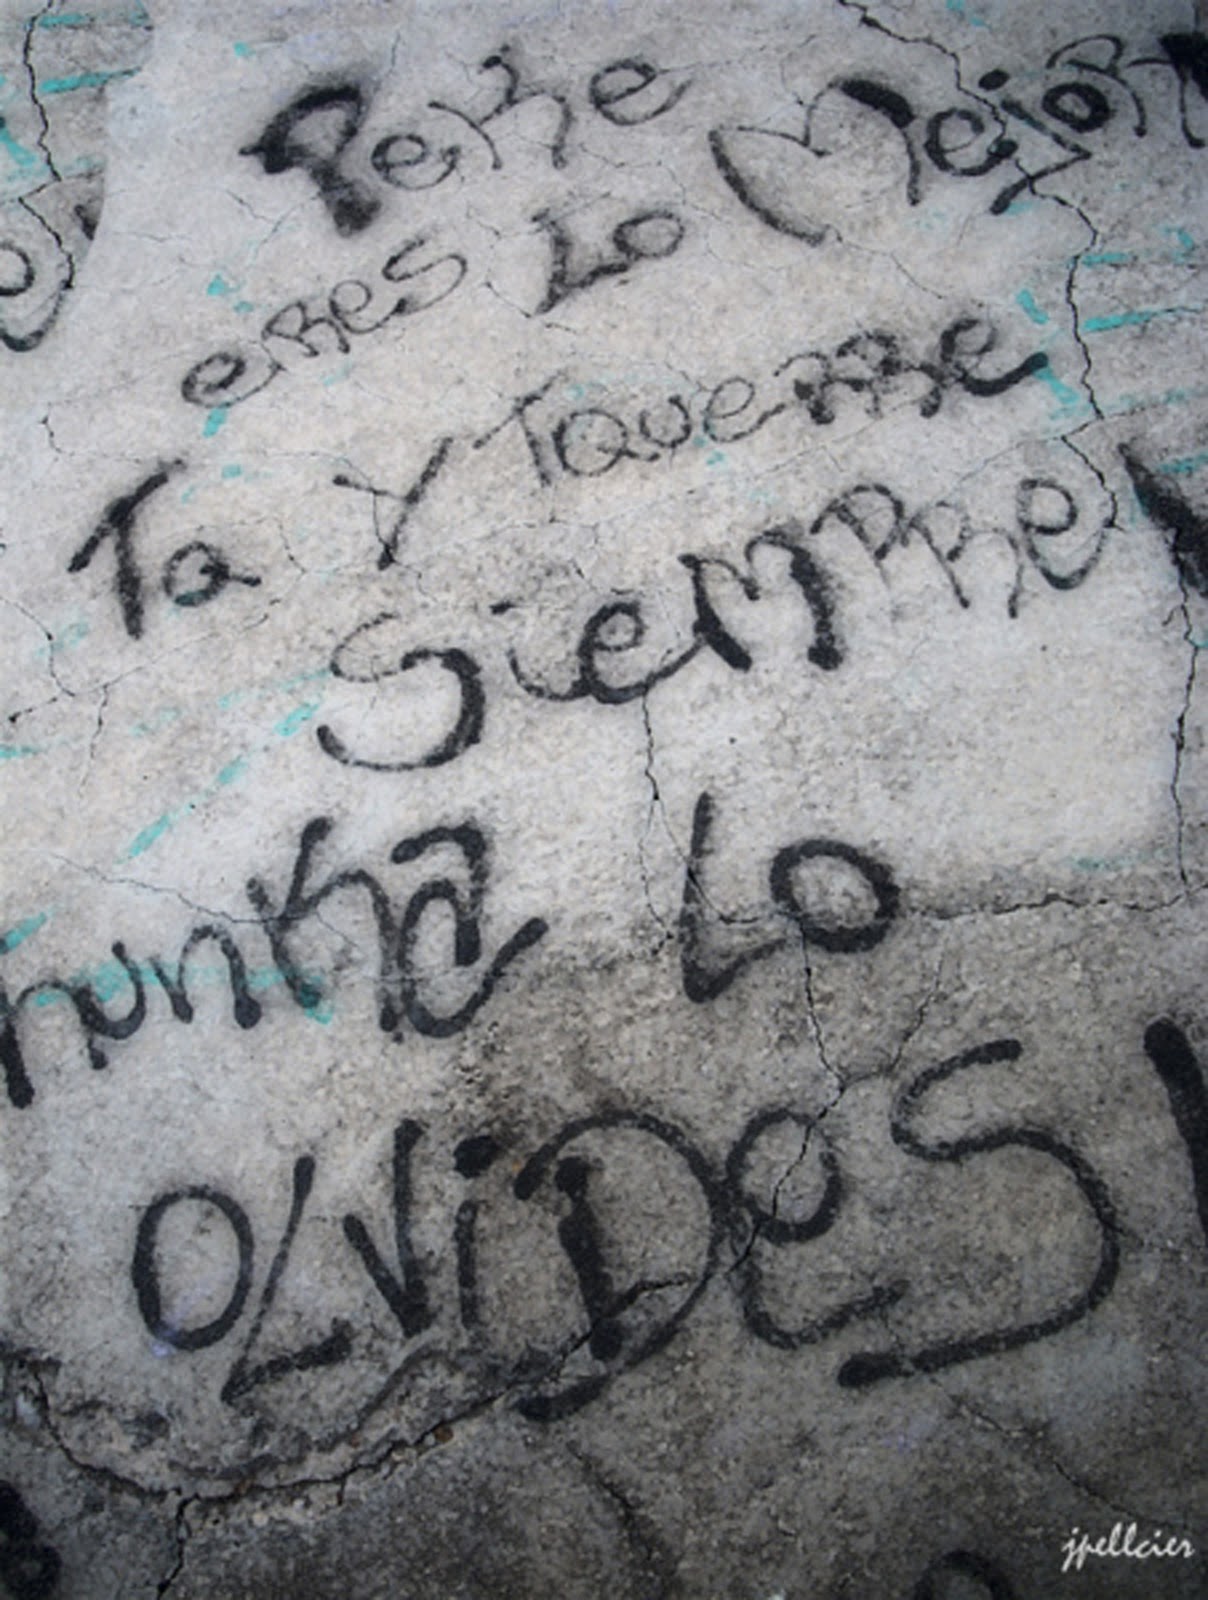 Peke
eres Lo Mejor
Ta Y TQuerre
Siempre!
nunka Lo
OLViDeS!
jpellcier